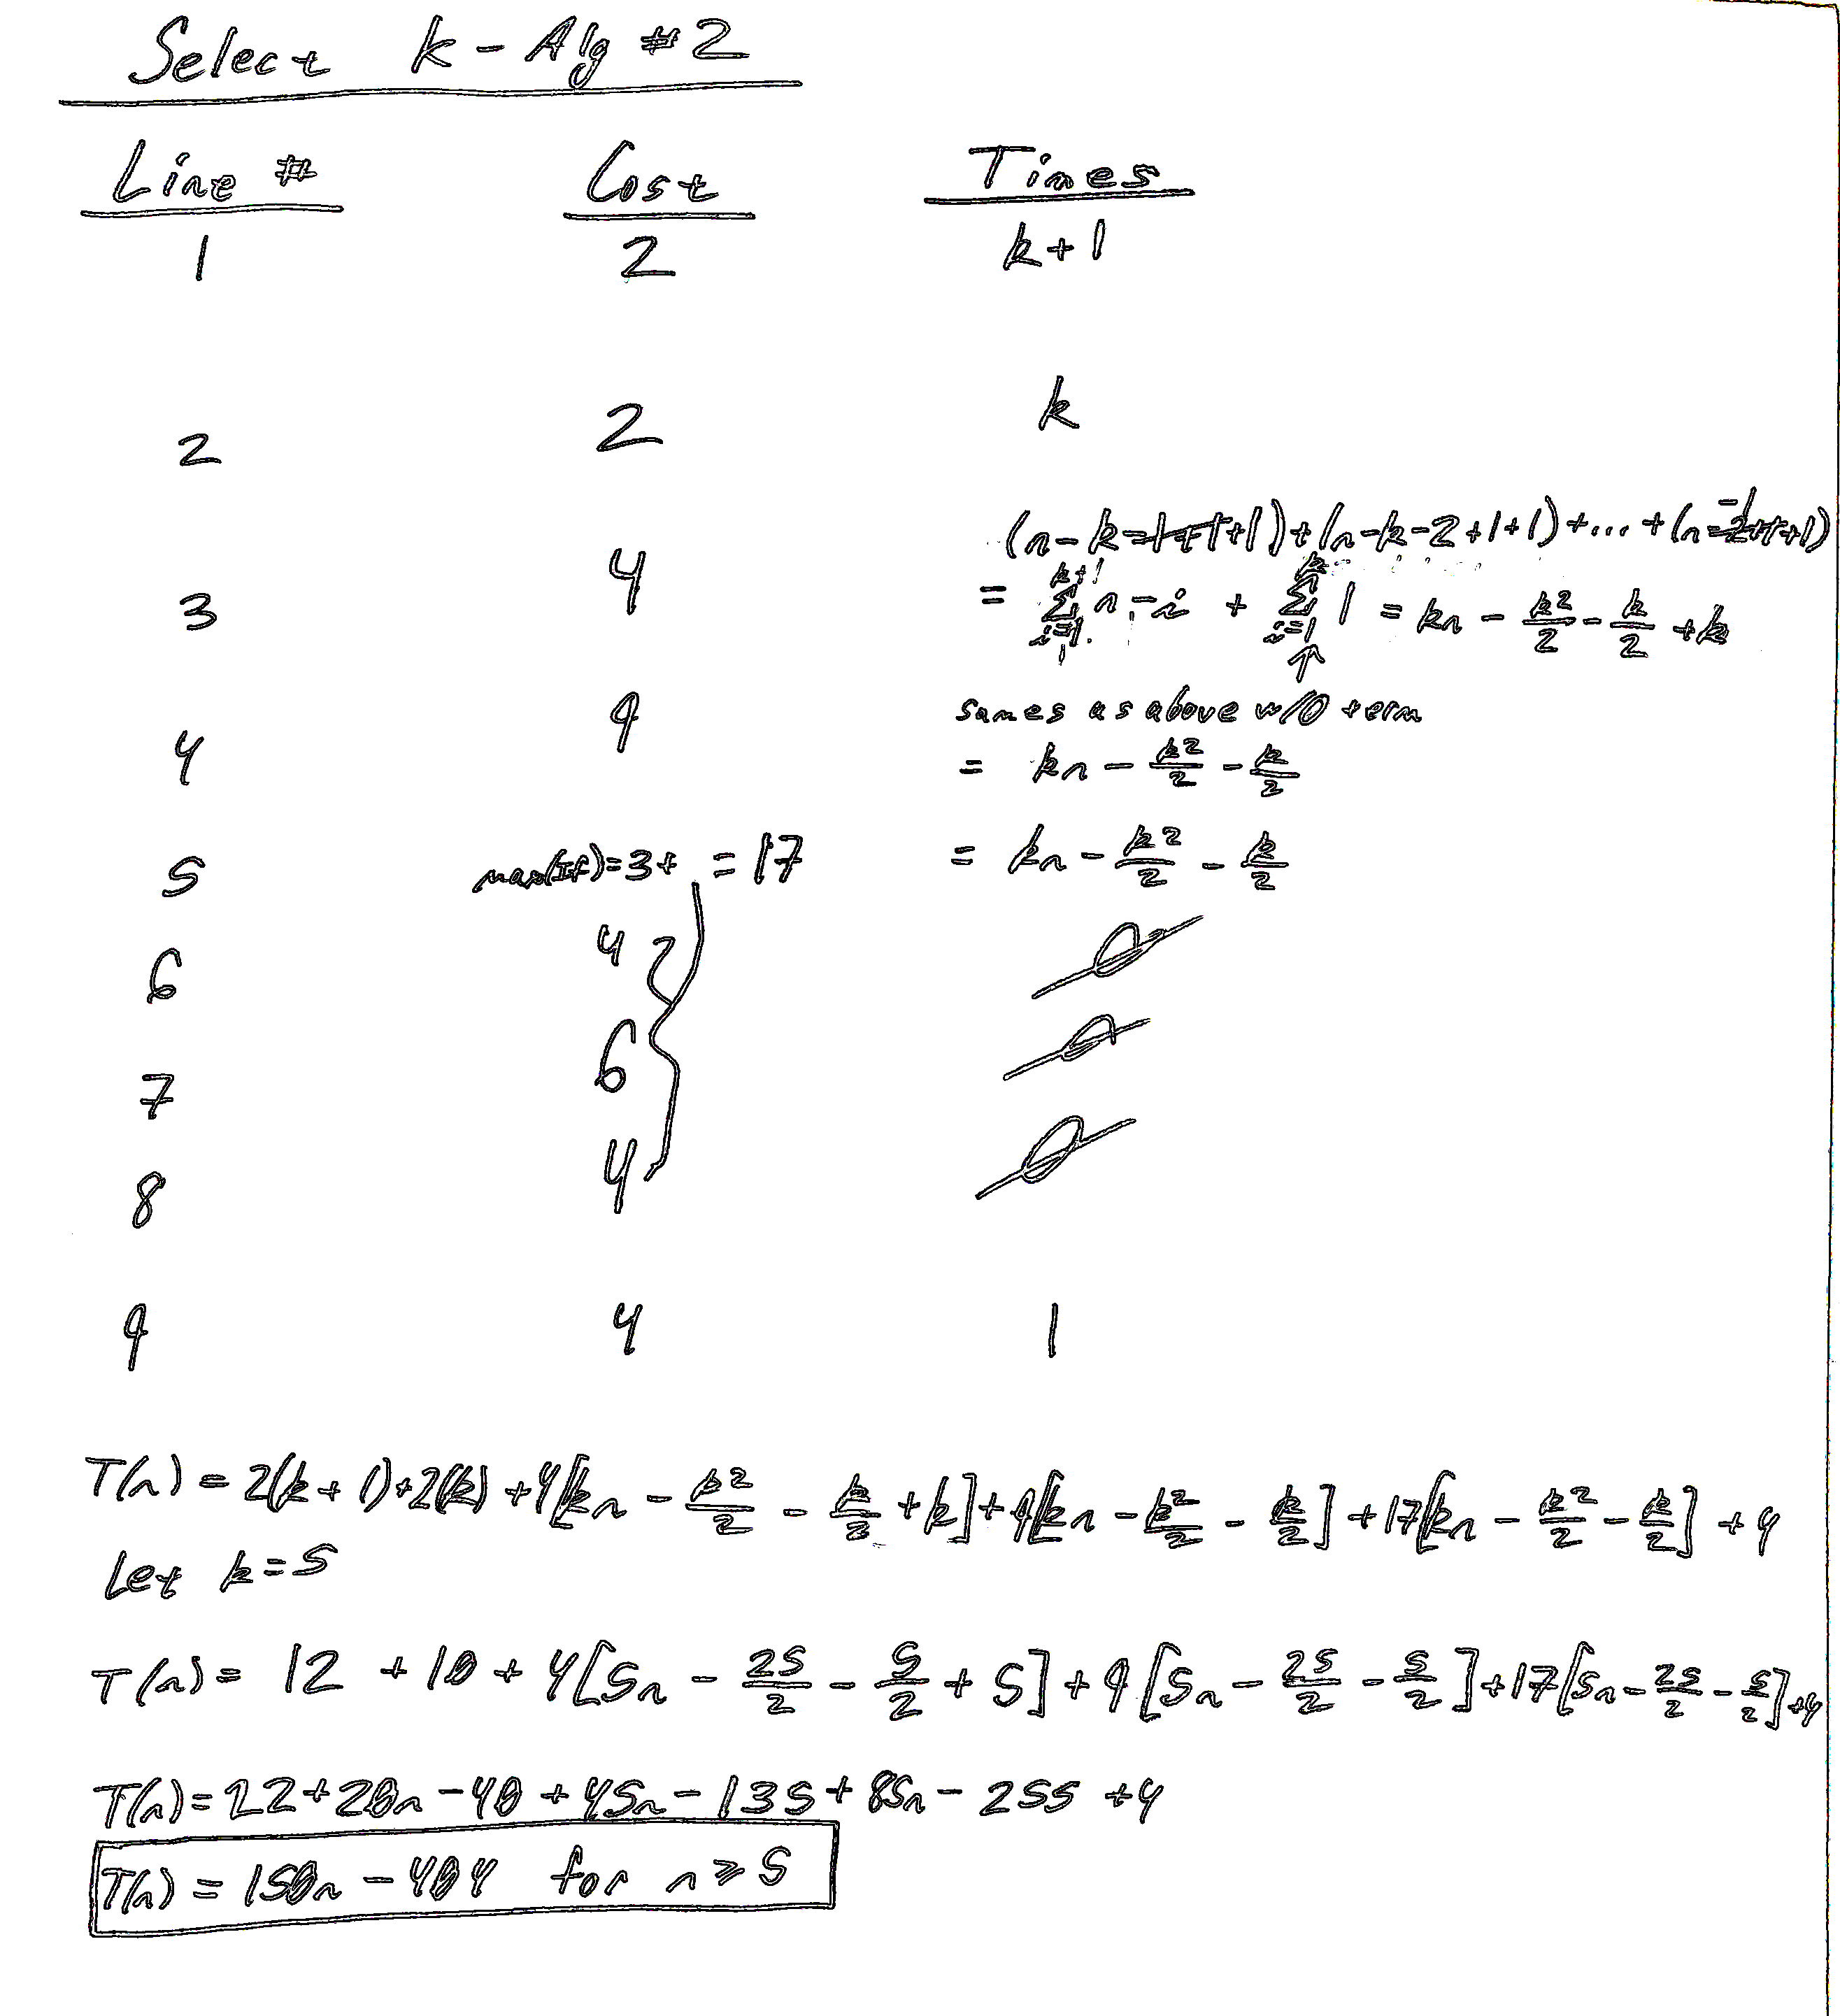 Select k - Alg #2
Line # Cost Times
1 2 k+1
2 2 k
(n-k-1+1+1)+(n-k-2+1+1)+...+(n-1+1)
3 4 = Σ n-i + Σ 1 = kn - k²/2 - k/2 + k
4 9 sames as above w/o term
= kn - k²/2 - k/2
5 max(If)=3+ = 17 = kn - k²/2 - k/2
6 4 0
7 6 0
8 4 0
9 4 1
T(n) = 2(k+1)+2(k)+4[kn - k²/2 - k/2 + k]+9[kn - k²/2 - k/2]+17[kn - k²/2 - k/2] + 4
Let k=5
T(n) = 12 + 10 + 4[5n - 25/2 - 5/2 + 5] + 9[5n - 25/2 - 5/2]+17[5n - 25/2 - 5/2]+4
T(n) = 22+20n - 40 + 45n - 135 + 85n - 255 + 4
T(n) = 150n - 404 for n ≥ 5